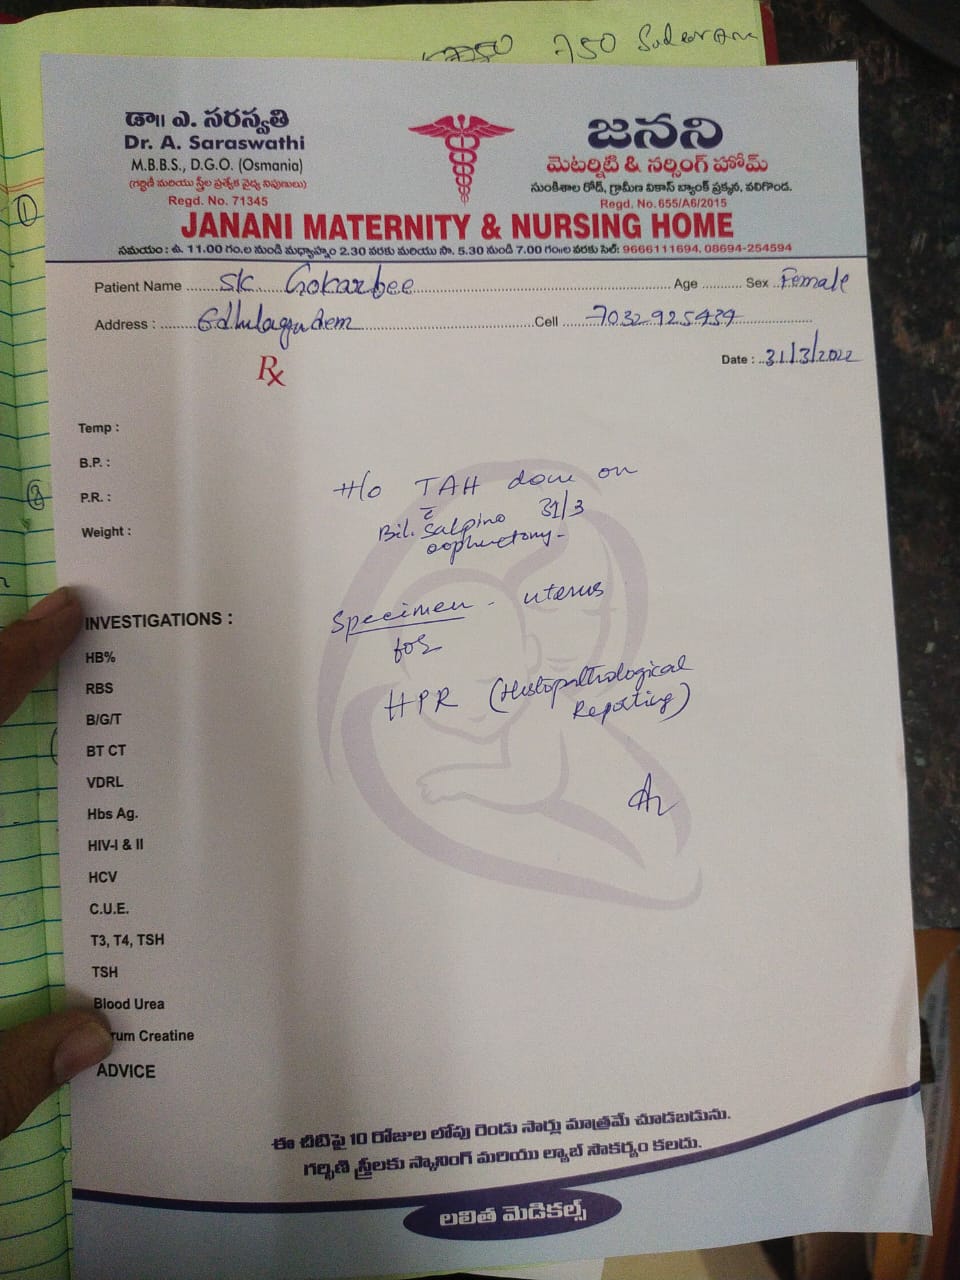 750 Sudevan
డా॥ ఎ. సరస్వతి
Dr. A. Saraswathi
M.B.B.S., D.G.O. (Osmania)
(గర్భిణీ మరియు స్త్రీల ప్రత్యేక వైద్య నిపుణులు)
Regd. No. 71345
జనని
మెటర్నిటి & నర్సింగ్ హోమ్
సుంకిశాల రోడ్, గ్రామీణ వికాస్ బ్యాంక్ ప్రక్కన, వలిగొండ.
Regd. No. 655/A6/2015
JANANI MATERNITY & NURSING HOME
సమయం : ఉ. 11.00 గం.ల నుండి మధ్యాహ్నం 2.30 వరకు మరియు సా. 5.30 నుండి 7.00 గం॥ల వరకు సెల్: 9666111694, 08694-254594
Patient Name ...... Sk. Gokarbee ...... Age .......... Sex .. Female
Address : ...... Edhulagudem ...... Cell ...... 7032925439 ......
Rx
Date : .. 31/3/2022
Temp :
B.P. :
P.R. :
Weight :
H/o TAH done on
c̄ 31/3
Bil. Salpino
oophrectomy -
Specimen - uterus
for
HPR (Histopathological
Reporting)
INVESTIGATIONS :
HB%
RBS
B/G/T
BT CT
VDRL
Hbs Ag.
HIV-I & II
HCV
C.U.E.
T3, T4, TSH
TSH
Blood Urea
rum Creatine
ADVICE
ఈ చీటిపై 10 రోజుల లోపు రెండు సార్లు మాత్రమే చూడబడును.
గర్భిణీ స్త్రీలకు స్కానింగ్ మరియు ల్యాబ్ సౌకర్యం కలదు.
లలిత మెడికల్స్